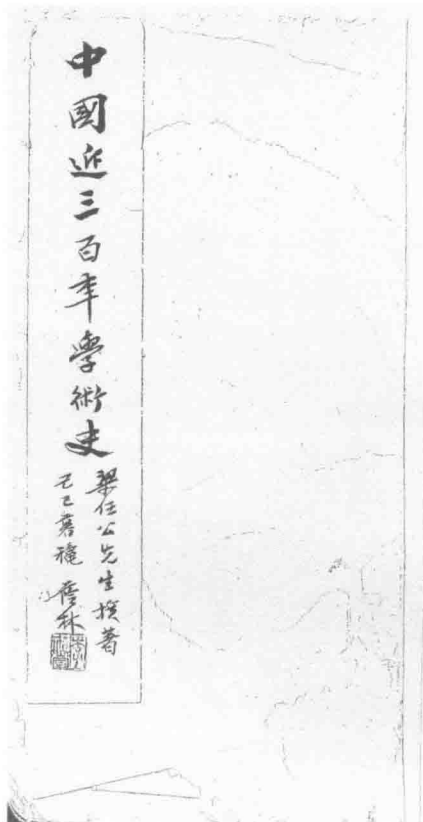 中國近三百年學術史
梁任公先生撰著
己巳暮穐 舊林